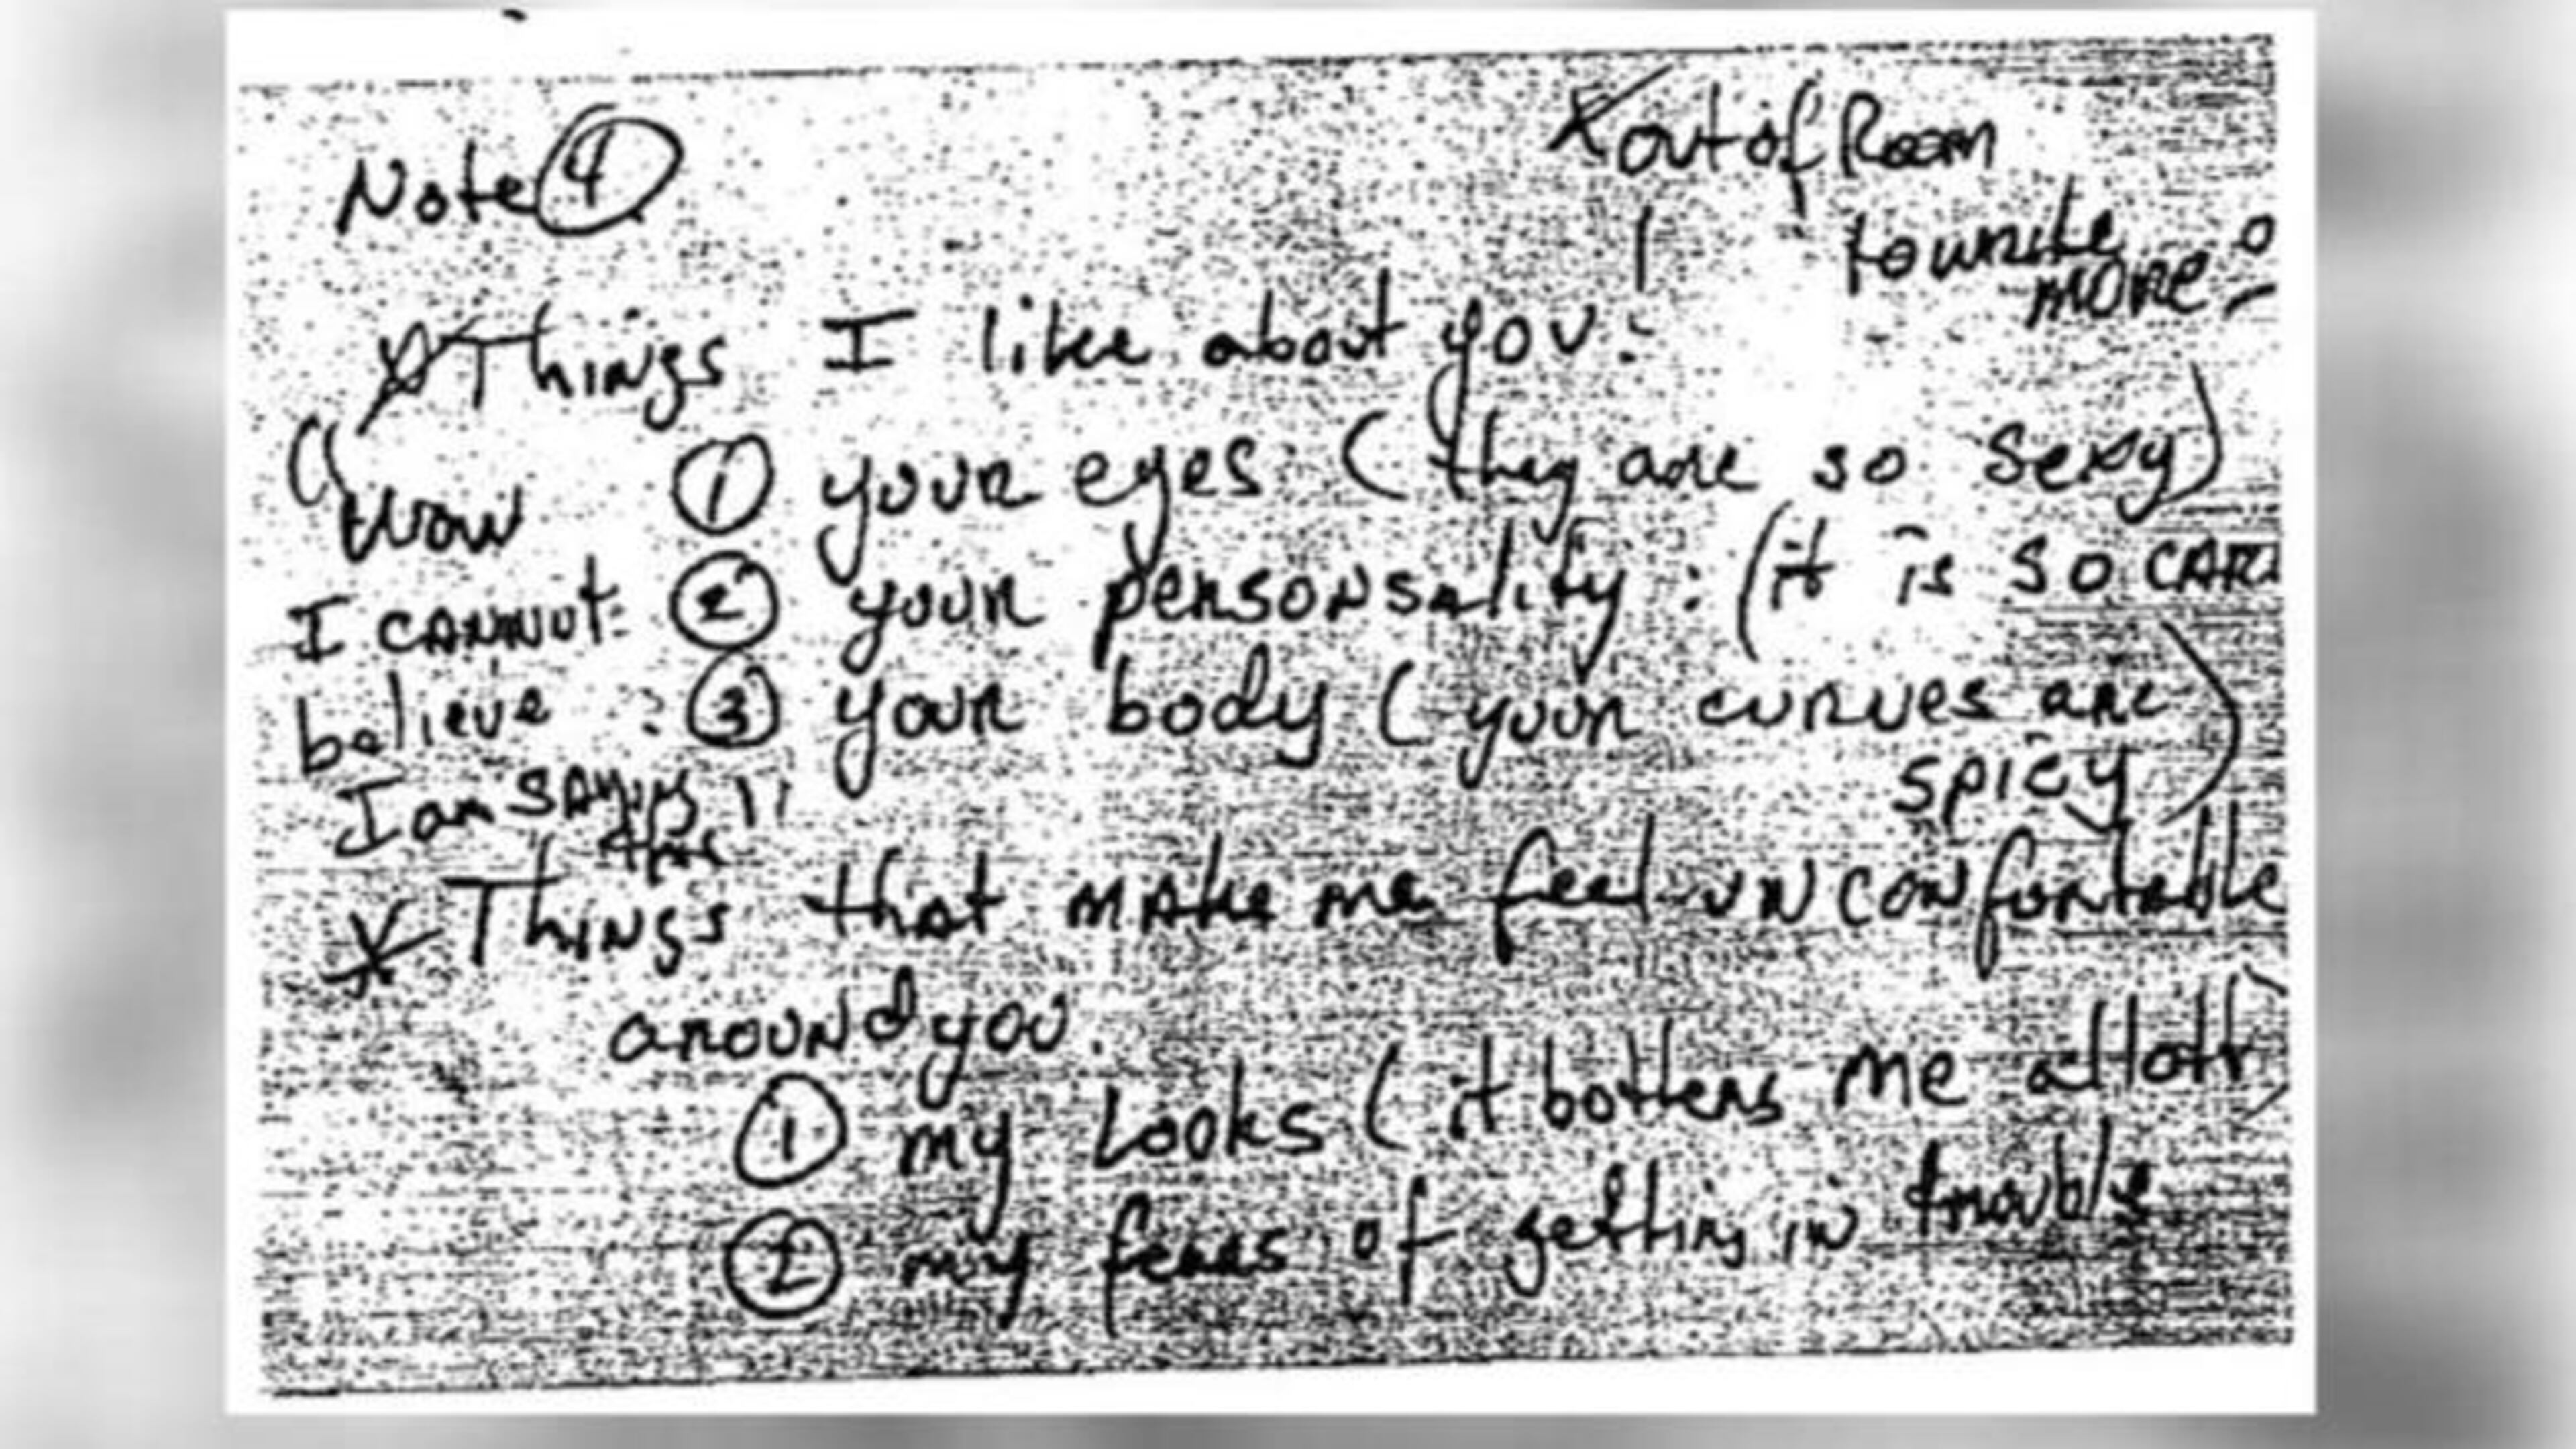 Note 4
out of Room
to write
more
Things I like about you:
Wow 1 your eyes (they are so sexy)
I cannot 2 your personsality: (it is so CAR
believe 3 your body (your curves are
spicy)
I am saying !!
this
* Things that make me feel unconfortable
around you.
1 my Looks (it botters me allott)
2 my fears of getting in trouble